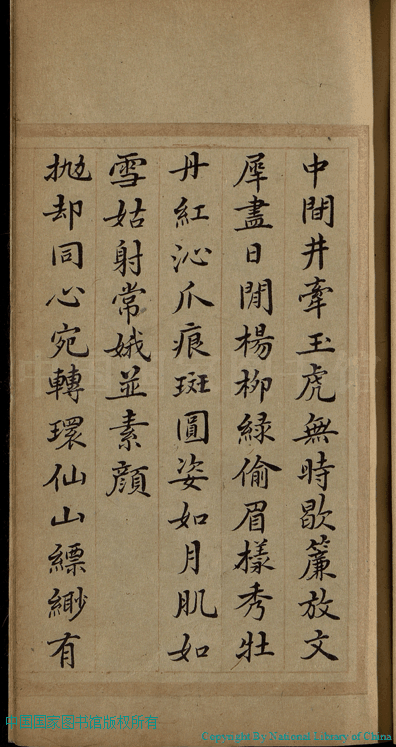 中間井牽玉虎無時歇簾放文
犀盡日閒楊柳緑偷眉樣秀牡
丹紅沁爪痕斑圓姿如月肌如
雪姑射常娥並素顔
拋却同心宛轉環仙山縹緲有
中国国家图书馆版权所有
Copyright By National Library of China